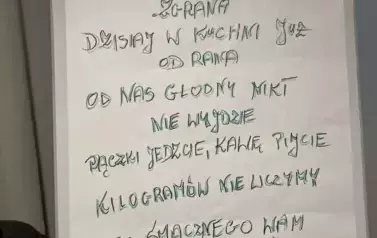 ZGRANA
DZISIAJ W KUCHNI JUŻ
OD RANA
OD NAS GŁODNY NIKT
NIE WYJDZIE
PĄCZKI JEDZCIE, KAWĘ PIJCIE
KILOGRAMÓW NIE LICZYMY
SMACZNEGO WAM